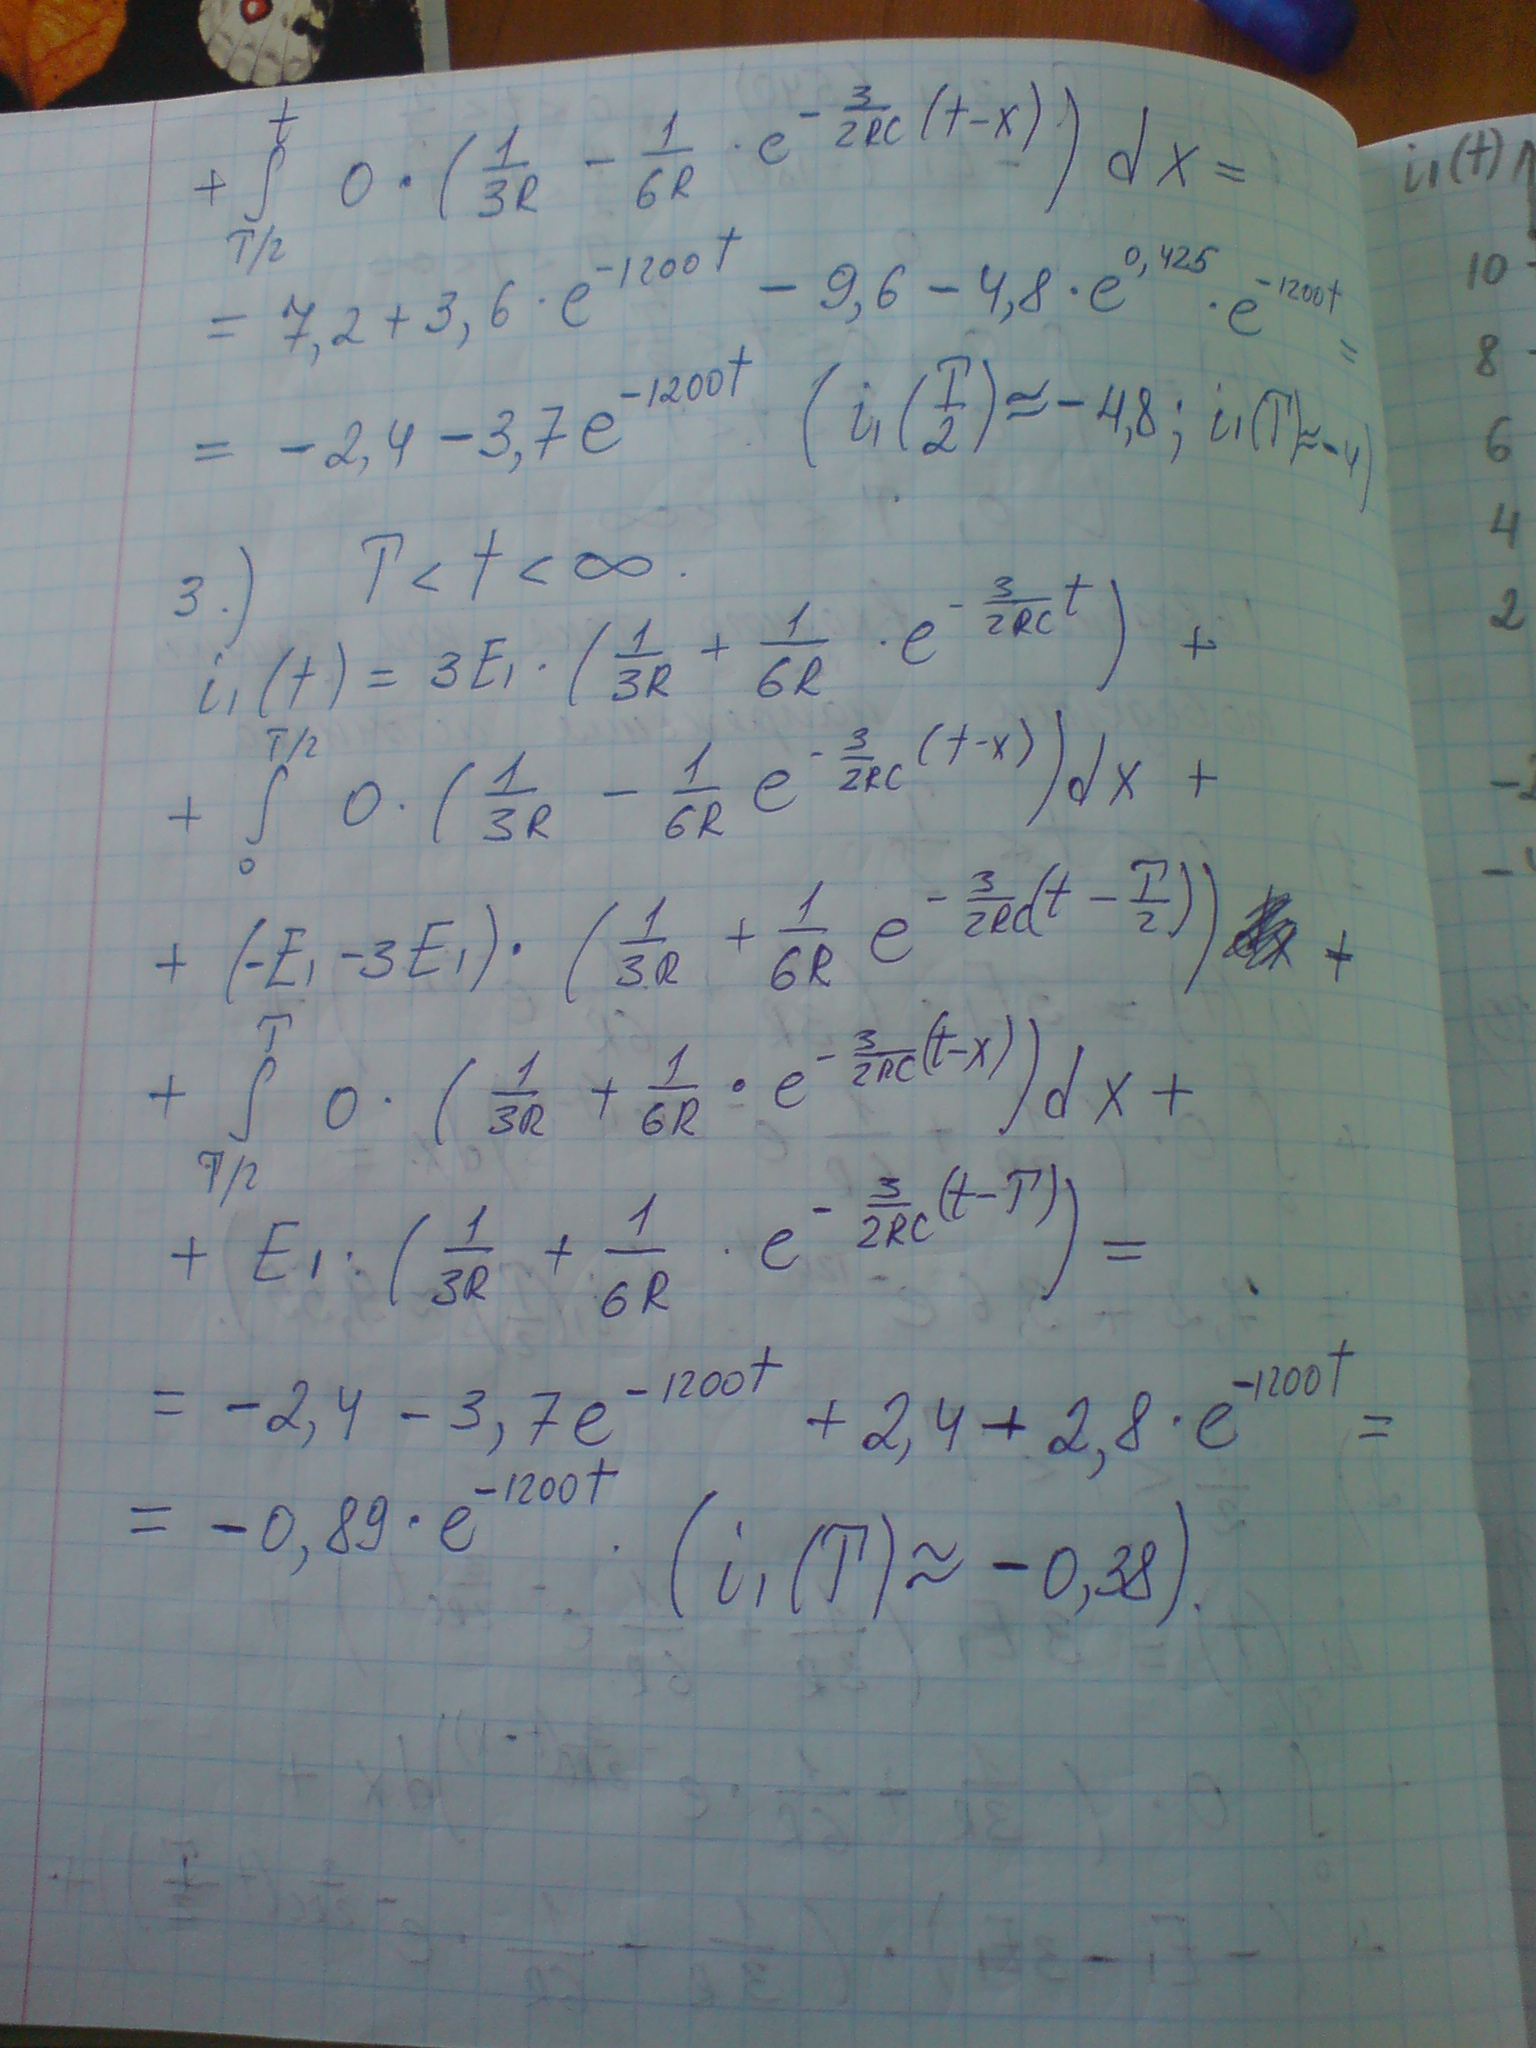 + ∫_{T/2}^{t} 0 · (1/3R − 1/6R · e^{−3/2RC (t−x)}) dx =
= 7,2 + 3,6 · e^{−1200t} − 9,6 − 4,8 · e^{0,425} · e^{−1200t} =
= −2,4 − 3,7e^{−1200t} (i₁(T/2) ≈ −4,8; i₁(T) ≈ −4)
3.) T < t < ∞.
i₁(t) = 3E₁ · (1/3R + 1/6R · e^{−3/2RC t}) +
+ ∫_{0}^{T/2} 0 · (1/3R − 1/6R e^{−3/2RC (t−x)}) dx +
+ (−E₁ −3E₁) · (1/3R + 1/6R e^{−3/2RC (t − T/2)}) +
+ ∫_{T/2}^{T} 0 · (1/3R + 1/6R · e^{−3/2RC (t−x)}) dx +
+ E₁ · (1/3R + 1/6R · e^{−3/2RC (t−T)}) =
= −2,4 − 3,7e^{−1200t} + 2,4 + 2,8 · e^{−1200t} =
= −0,89 · e^{−1200t}. (i₁(T) ≈ −0,38).
i₁(t)
10
8
6
4
2